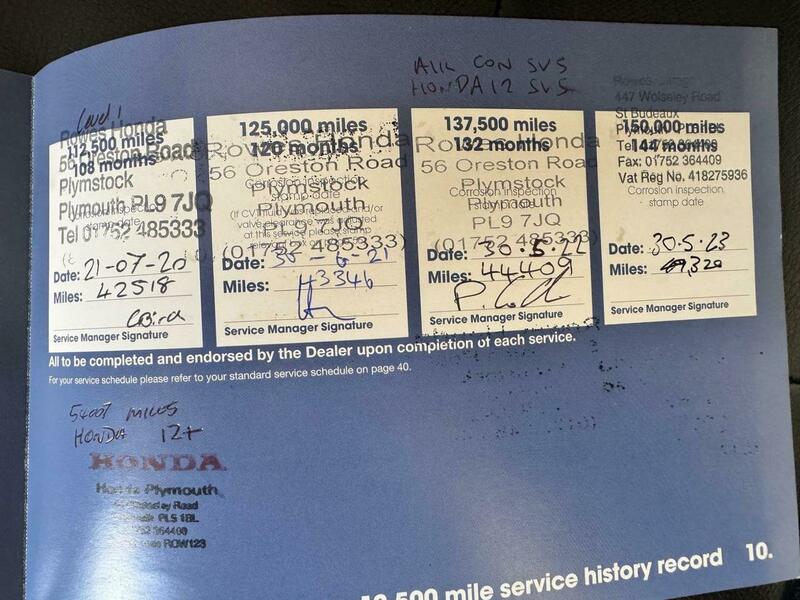 AIR CON SVS
HONDA 12 SVS
Level 1
Rowes Honda
56 Oreston Road
Plymstock
Plymouth PL9 7JQ
Tel 01752 485333
112,500 miles
108 months
Corrosion inspection
stamp date
Date: 21-07-20
Miles: 42518
Service Manager Signature
125,000 miles
120 months
Rowes Honda
56 Oreston Road
Plymstock
Plymouth
PL9 7JQ
(01752 485333)
Corrosion inspection
stamp date
Date: 30-6-21
Miles: 43346
Service Manager Signature
137,500 miles
132 months
Rowes Honda
56 Oreston Road
Plymstock
Plymouth
PL9 7JQ
(01752 485333)
Corrosion inspection
Date: 30.5.22
Miles: 44409
Service Manager Signature
447 Wolseley Road
St Budeaux
150,000 miles
144 months
Fax: 01752 364409
Vat Reg No. 418275936
Corrosion inspection
stamp date
Date: 30.5.23
Miles: 49,320
Service Manager Signature
All to be completed and endorsed by the Dealer upon completion of each service.
For your service schedule please refer to your standard service schedule on page 40.
54007 MILES
HONDA 12+
HONDA
Honda Plymouth
Wolseley Road
PL5 1BL
ROW123
,500 mile service history record 10.